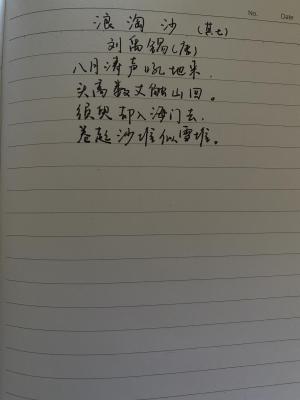 No.
Date
浪淘沙(其七)
刘禹锡(唐)
八月涛声吼地来,
头高数丈触山回。
须臾却入海门去,
卷起沙堆似雪堆。